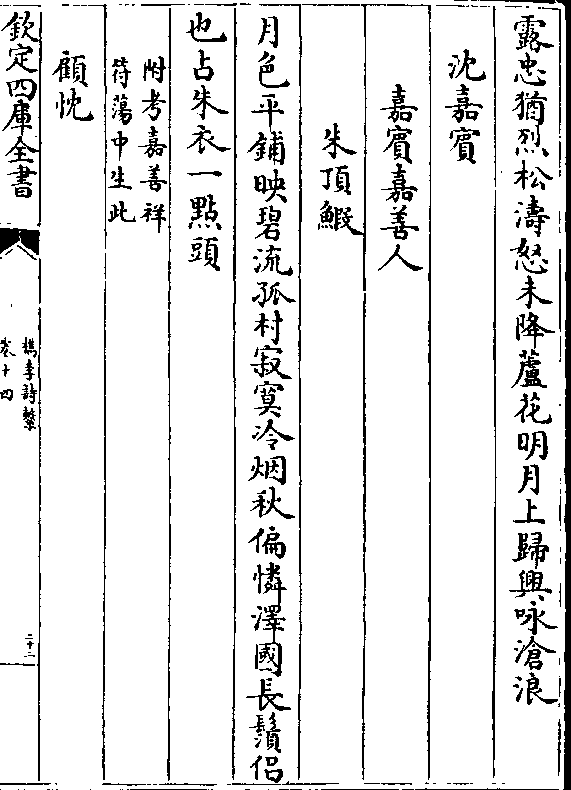 露忠猶烈松濤怒未降蘆花明月上歸興咏滄浪
沈嘉賓
嘉賓嘉善人
朱頂鰕
月色平鋪映碧流孤村寂寞冷烟秋偏憐澤國長鬚侣
也占朱衣一點頭
附考嘉善祥
符蕩中生此
顧忱
欽定四庫全書
檇李詩繫
卷十四
二十二